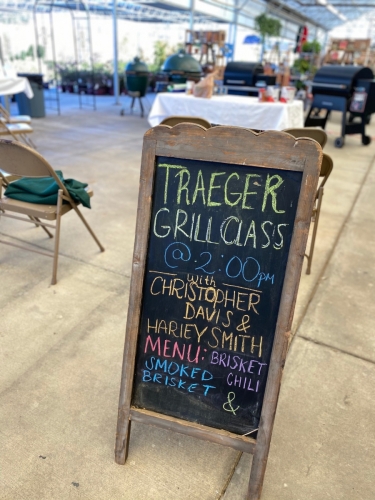 TRAEGER
GRILL CLASS
@ 2:00pm
with
CHRISTOPHER
DAVIS &
HARLEY SMITH
MENU: BRISKET
CHILI
SMOKED
BRISKET
&